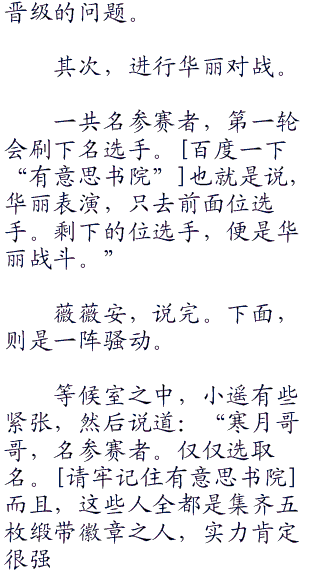 晋级的问题。
其次，进行华丽对战。
一共名参赛者，第一轮
会刷下名选手。[百度一下
“有意思书院”]也就是说，
华丽表演，只去前面位选
手。剩下的位选手，便是华
丽战斗。”
薇薇安，说完。下面，
则是一阵骚动。
等候室之中，小遥有些
紧张，然后说道：“寒月哥
哥，名参赛者。仅仅选取
名。[请牢记住有意思书院]
而且，这些人全都是集齐五
枚缎带徽章之人，实力肯定
很强